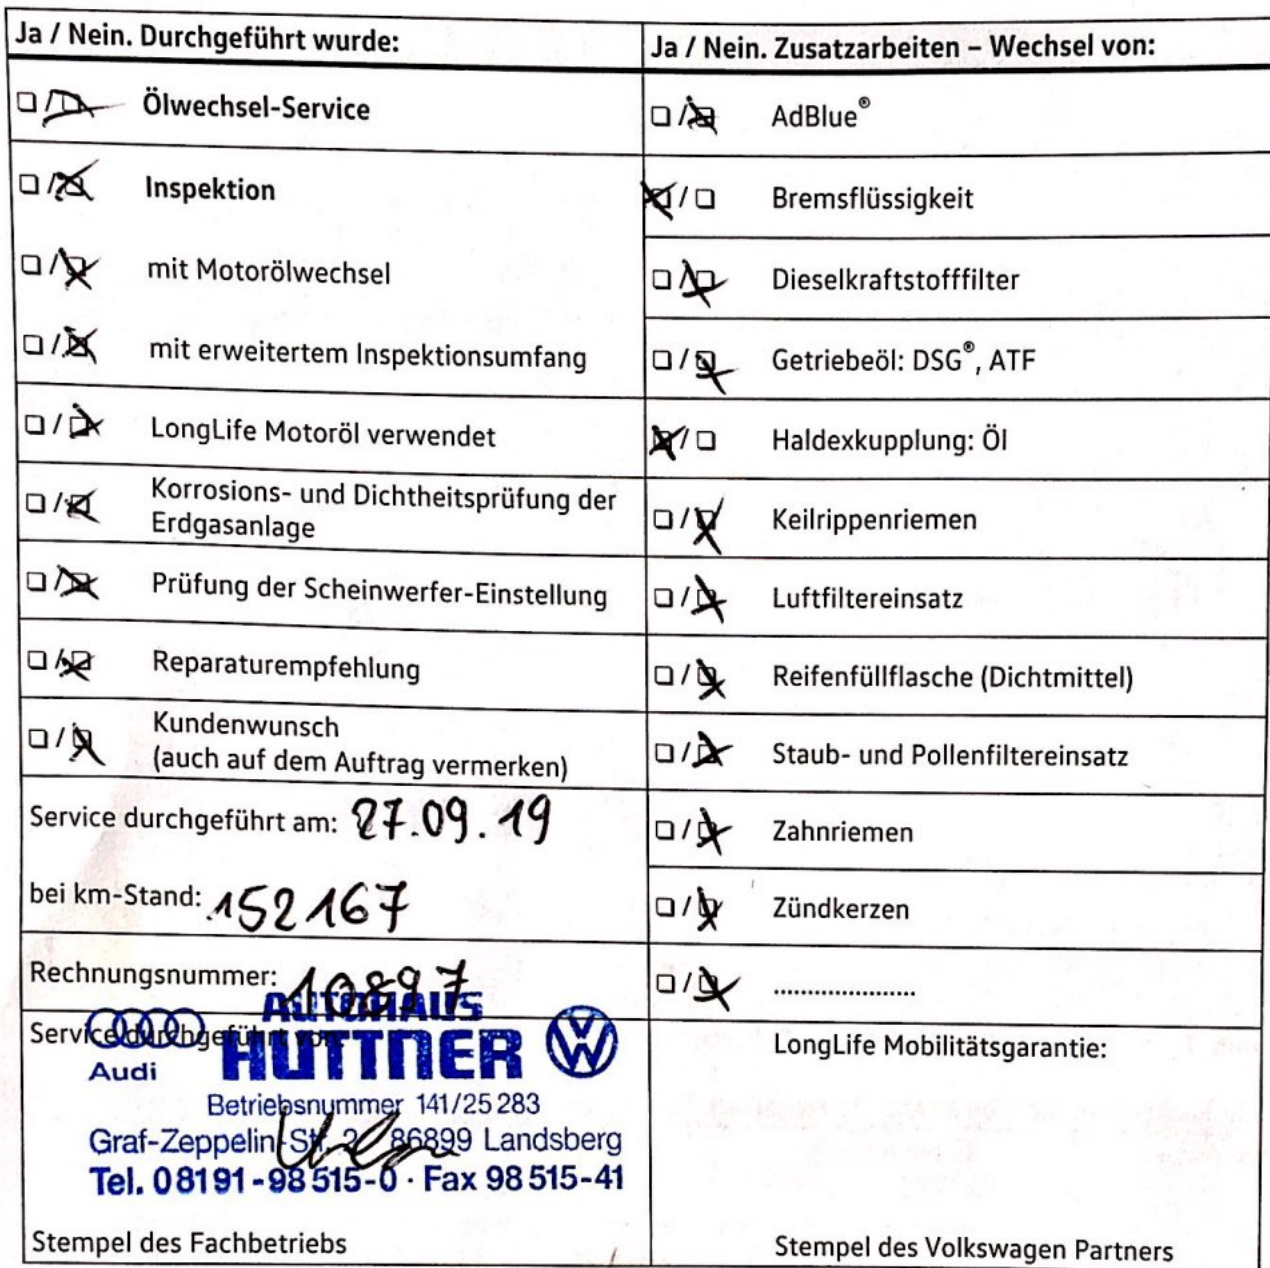 Ja / Nein. Durchgeführt wurde:
Ölwechsel-Service
Inspektion
mit Motorölwechsel
mit erweitertem Inspektionsumfang
LongLife Motoröl verwendet
Korrosions- und Dichtheitsprüfung der
Erdgasanlage
Prüfung der Scheinwerfer-Einstellung
Reparaturempfehlung
Kundenwunsch
(auch auf dem Auftrag vermerken)
Service durchgeführt am: 27.09.19
bei km-Stand: 152167
Rechnungsnummer: 10897
Service durchgeführt von:
AUTOHAUS
HUTTNER
Audi
Betriebsnummer 141/25 283
Graf-Zeppelin-Str. 86899 Landsberg
Tel. 08191-98 515-0 · Fax 98 515-41
Stempel des Fachbetriebs
Ja / Nein. Zusatzarbeiten – Wechsel von:
AdBlue®
Bremsflüssigkeit
Dieselkraftstofffilter
Getriebeöl: DSG®, ATF
Haldexkupplung: Öl
Keilrippenriemen
Luftfiltereinsatz
Reifenfüllflasche (Dichtmittel)
Staub- und Pollenfiltereinsatz
Zahnriemen
Zündkerzen
.....................
LongLife Mobilitätsgarantie:
Stempel des Volkswagen Partners